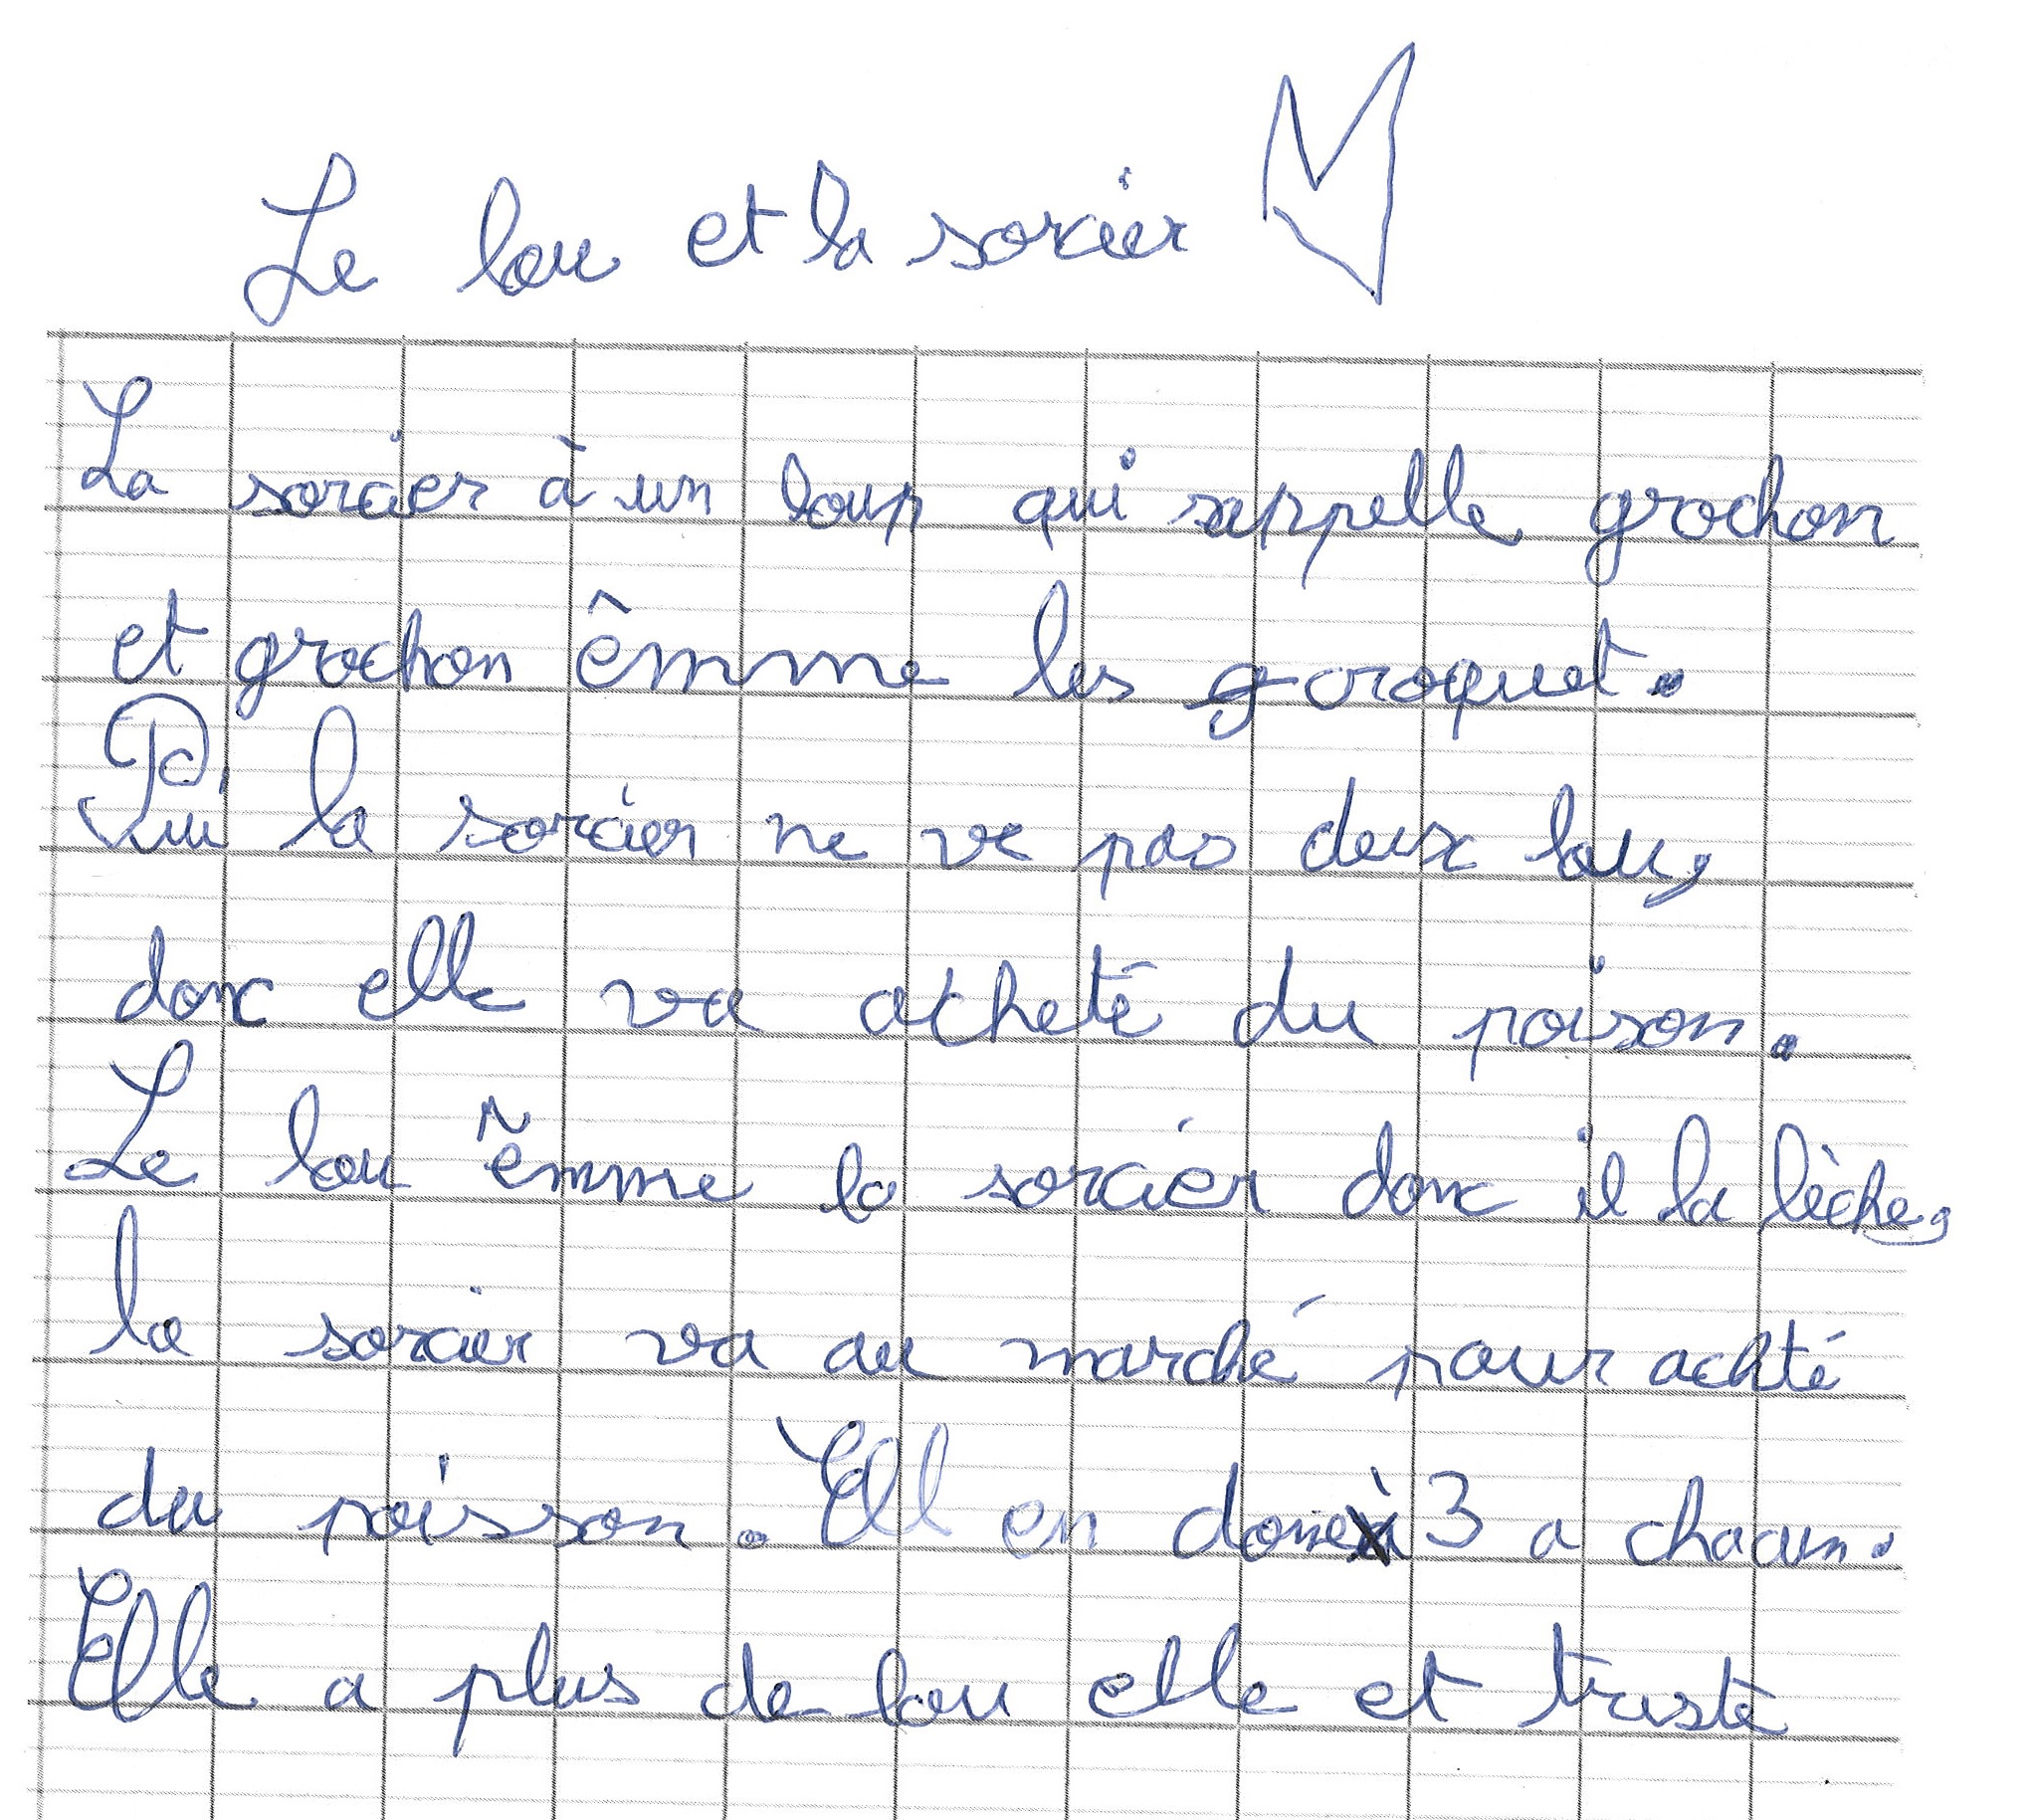 Le lou et la sorcier
La sorcier à un loup qui sappelle grochon
et grochon êmme les croquet.
Qui la sorcier ne ve pas deux lou,
donc elle va acheté du poison.
Le lou êmme la sorcier donc il la lèche,
la sorcier va au marché pour achté
du poisson. Ell en done 3 a chacun.
Elle a plus de lou elle et triste